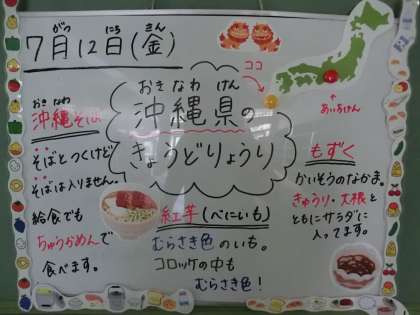 7月12日(金)
がつ にち きん
ココ
あいちけん
おきなわ けん
沖縄県の
きょうどりょうり
おき なわ
沖縄そば
そばとつくけど
そばは入りません。
給食でも
ちゅうかめんで
食べます。
紅芋(べにいも)
むらさき色のいも。
コロッケの中も
むらさき色!
もずく
かいそうのなかま。
きゅうり・大根と
ともにサラダに
入ってます。